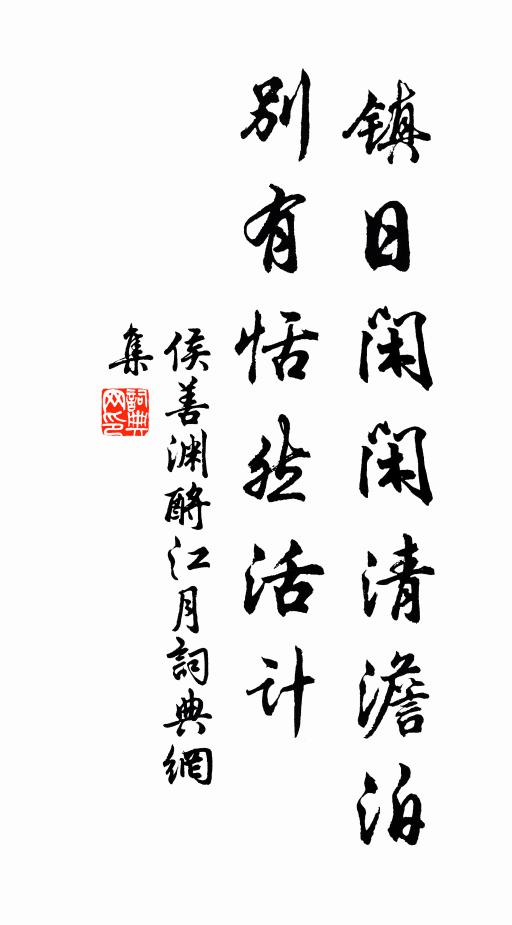 镇日闲闲清澹泊
别有恬然活计
侯善渊酹江月詞典網
集
詞典网印